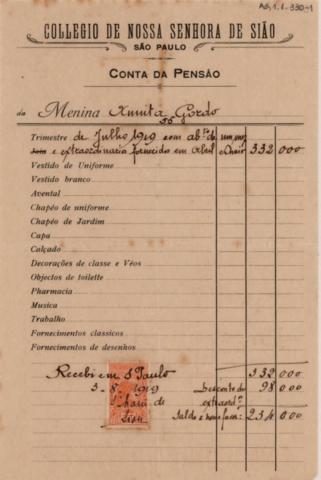 COLLEGIO DE NOSSA SENHORA DE SIÃO
SÃO PAULO
CONTA DA PENSÃO
da Menina Annita Gordo
Trimestre de Julho 1919 com ab.to de um mez
Joia e extraordinario fornecido em Abril 332 000
Vestido de Uniforme
Vestido branco
Avental
Chapéo de uniforme
Chapéo de Jardim
Capa
Calçado
Decorações de classe e Véos
Objectos de toilette
Pharmacia
Musica
Trabalho
Fornecimentos classicos
Fornecimentos de desenhos
Recebi em S. Paulo 332 000
3-8-1919 Desconto do 98 000
de extraord.o
Sion Saldo a nosso favor: 234 000